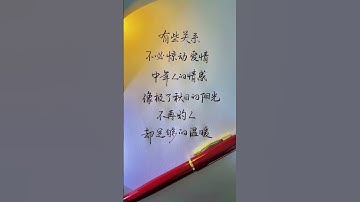 有些关系
不必惊动爱情
中年人的情感
像极了秋日的阳光
不再灼人
却足够的温暖